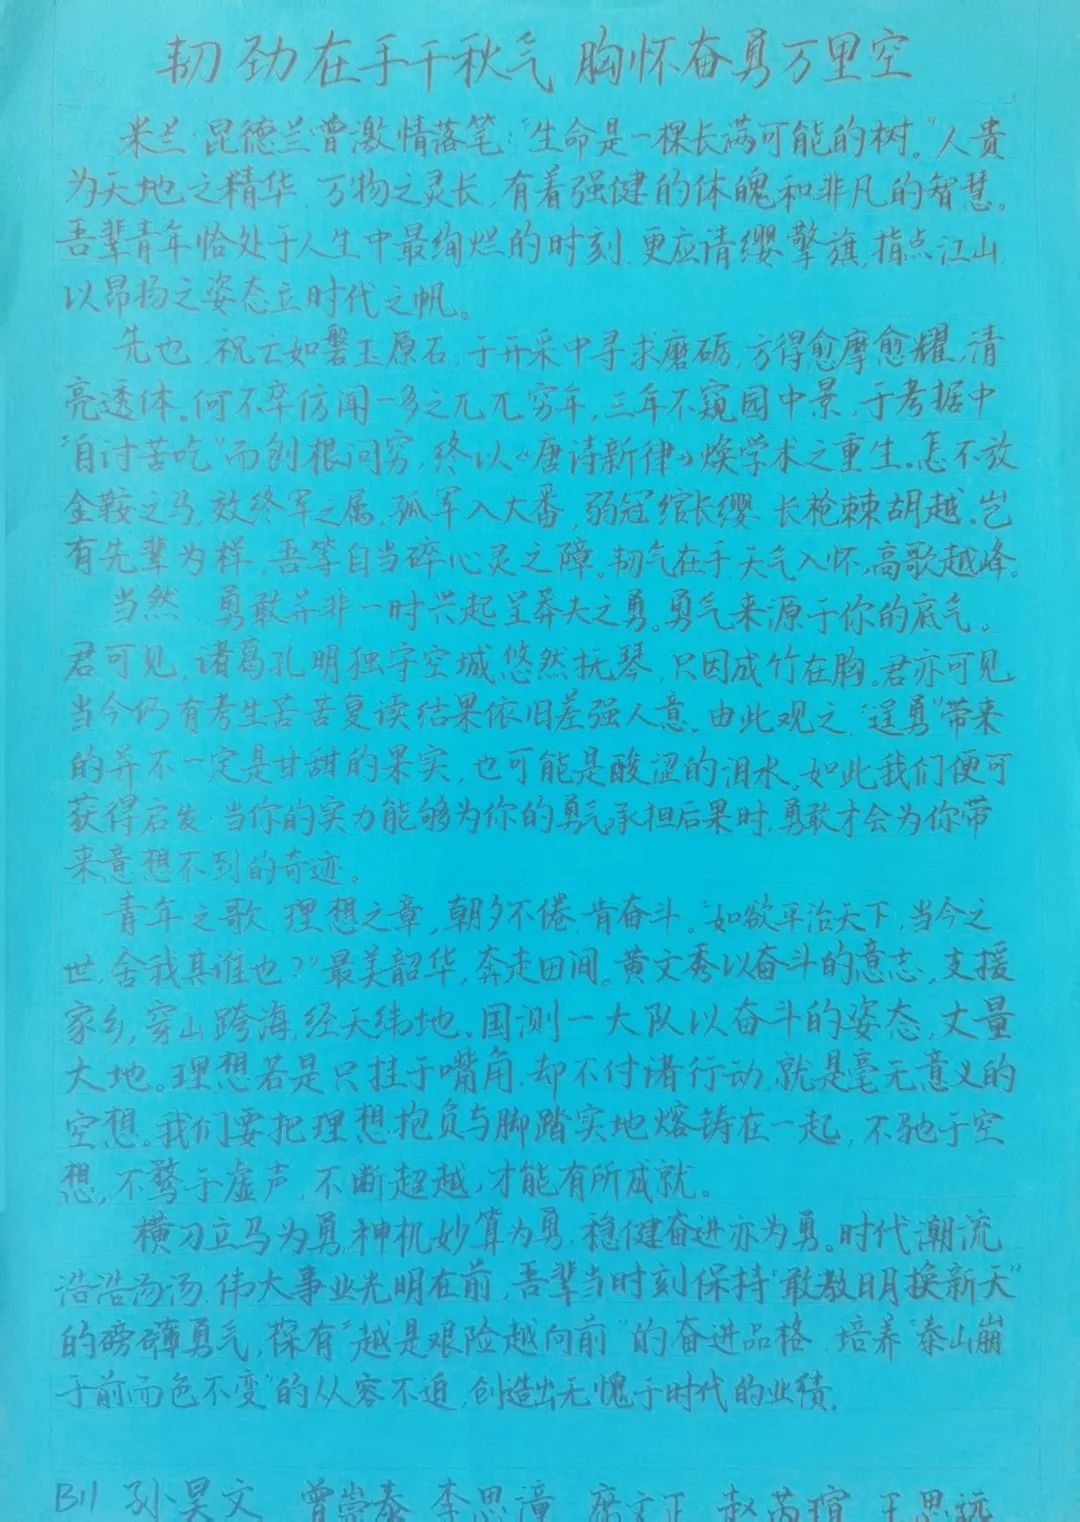 韧劲在手千秋气 胸怀奋勇万里空
米兰·昆德兰曾激情落笔:"生命是一棵长满可能的树。"人贵
为天地之精华,万物之灵长,有着强健的体魄和非凡的智慧。
吾辈青年恰处于人生中最绚烂的时刻,更应请缨擎旗,指点江山,
以昂扬之姿态立时代之帆。
先也,祝亡如磐玉原石,于开采中寻求磨砺,方得愈摩愈耀,清
亮透体。何不卒仿闻一多之兀兀穷年,三年不窥园中景,于考据中
"自讨苦吃"而刨根问穷,终以《唐诗新律》焕学术之重生。怎不放
金鞍之马,效终军之属,孤军入大番,弱冠绾长缨,长枪棘胡越。岂
有先辈为样,吾等自当碎心灵之障。韧气在手,天气入怀,高歌越峰。
当然,勇敢并非一时兴起呈莽夫之勇。勇气来源于你的底气。
君可见,诸葛孔明独守空城,悠然抚琴,只因成竹在胸。君亦可见,
当今仍有考生苦苦复读结果依旧差强人意。由此观之,"逞勇"带来
的并不一定是甘甜的果实,也可能是酸涩的泪水。如此我们便可
获得启发:当你的实力能够为你的勇气承担后果时,勇敢才会为你带
来意想不到的奇迹。
青年之歌,理想之章,朝夕不倦,肯奋斗。"如欲平治天下,当今之
世,舍我其谁也?"最美韶华,奔走田间。黄文秀以奋斗的意志,支援
家乡,穿山跨海,经天纬地。国测一大队以奋斗的姿态,丈量
大地。理想若是只挂于嘴角,却不付诸行动,就是毫无意义的
空想。我们要把理想抱负与脚踏实地熔铸在一起,不驰于空
想,不骛于虚声,不断超越,才能有所成就。
横刀立马为勇,神机妙算为勇,稳健奋进亦为勇。时代潮流
浩浩汤汤,伟大事业光明在前,吾辈当时刻保持"敢教日月换新天"
的磅礴勇气,葆有"越是艰险越向前"的奋进品格,培养"泰山崩
于前而色不变"的从容不迫,创造出无愧于时代的业绩。
B11 孙昊文 曾崇泰 李思潼 席文正 赵芮瑄 王思远